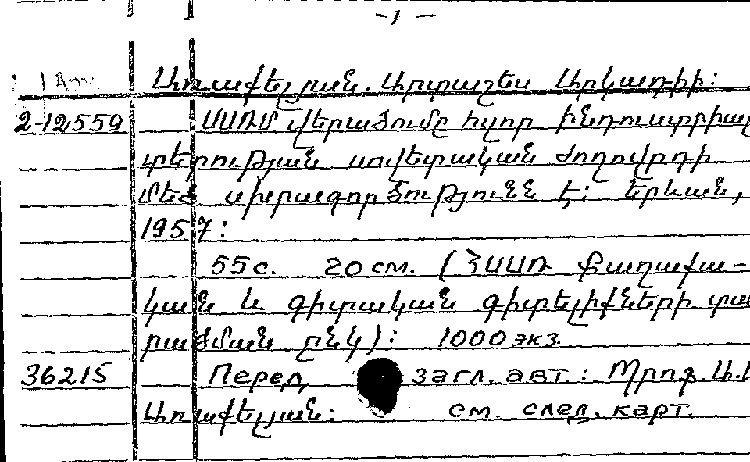 -1-
Առաքելյան. Արտաշես Արկադիի:
2-12559 ՍՍՌՄ վերածումը հզոր ինդուստրիալ
տերության սովետական ժողովրդի
մեծ սխրագործությունն է: Երևան,
1957:
55с. 20см. (ՀՍՍՌ Քաղաքա-
կան և գիտական գիտելիքների տա
րածման ընկ): 1000 экз.
36215 Перед загл. авт.: Պրոֆ. Ա.
Առաքելյան: см. след. карт.